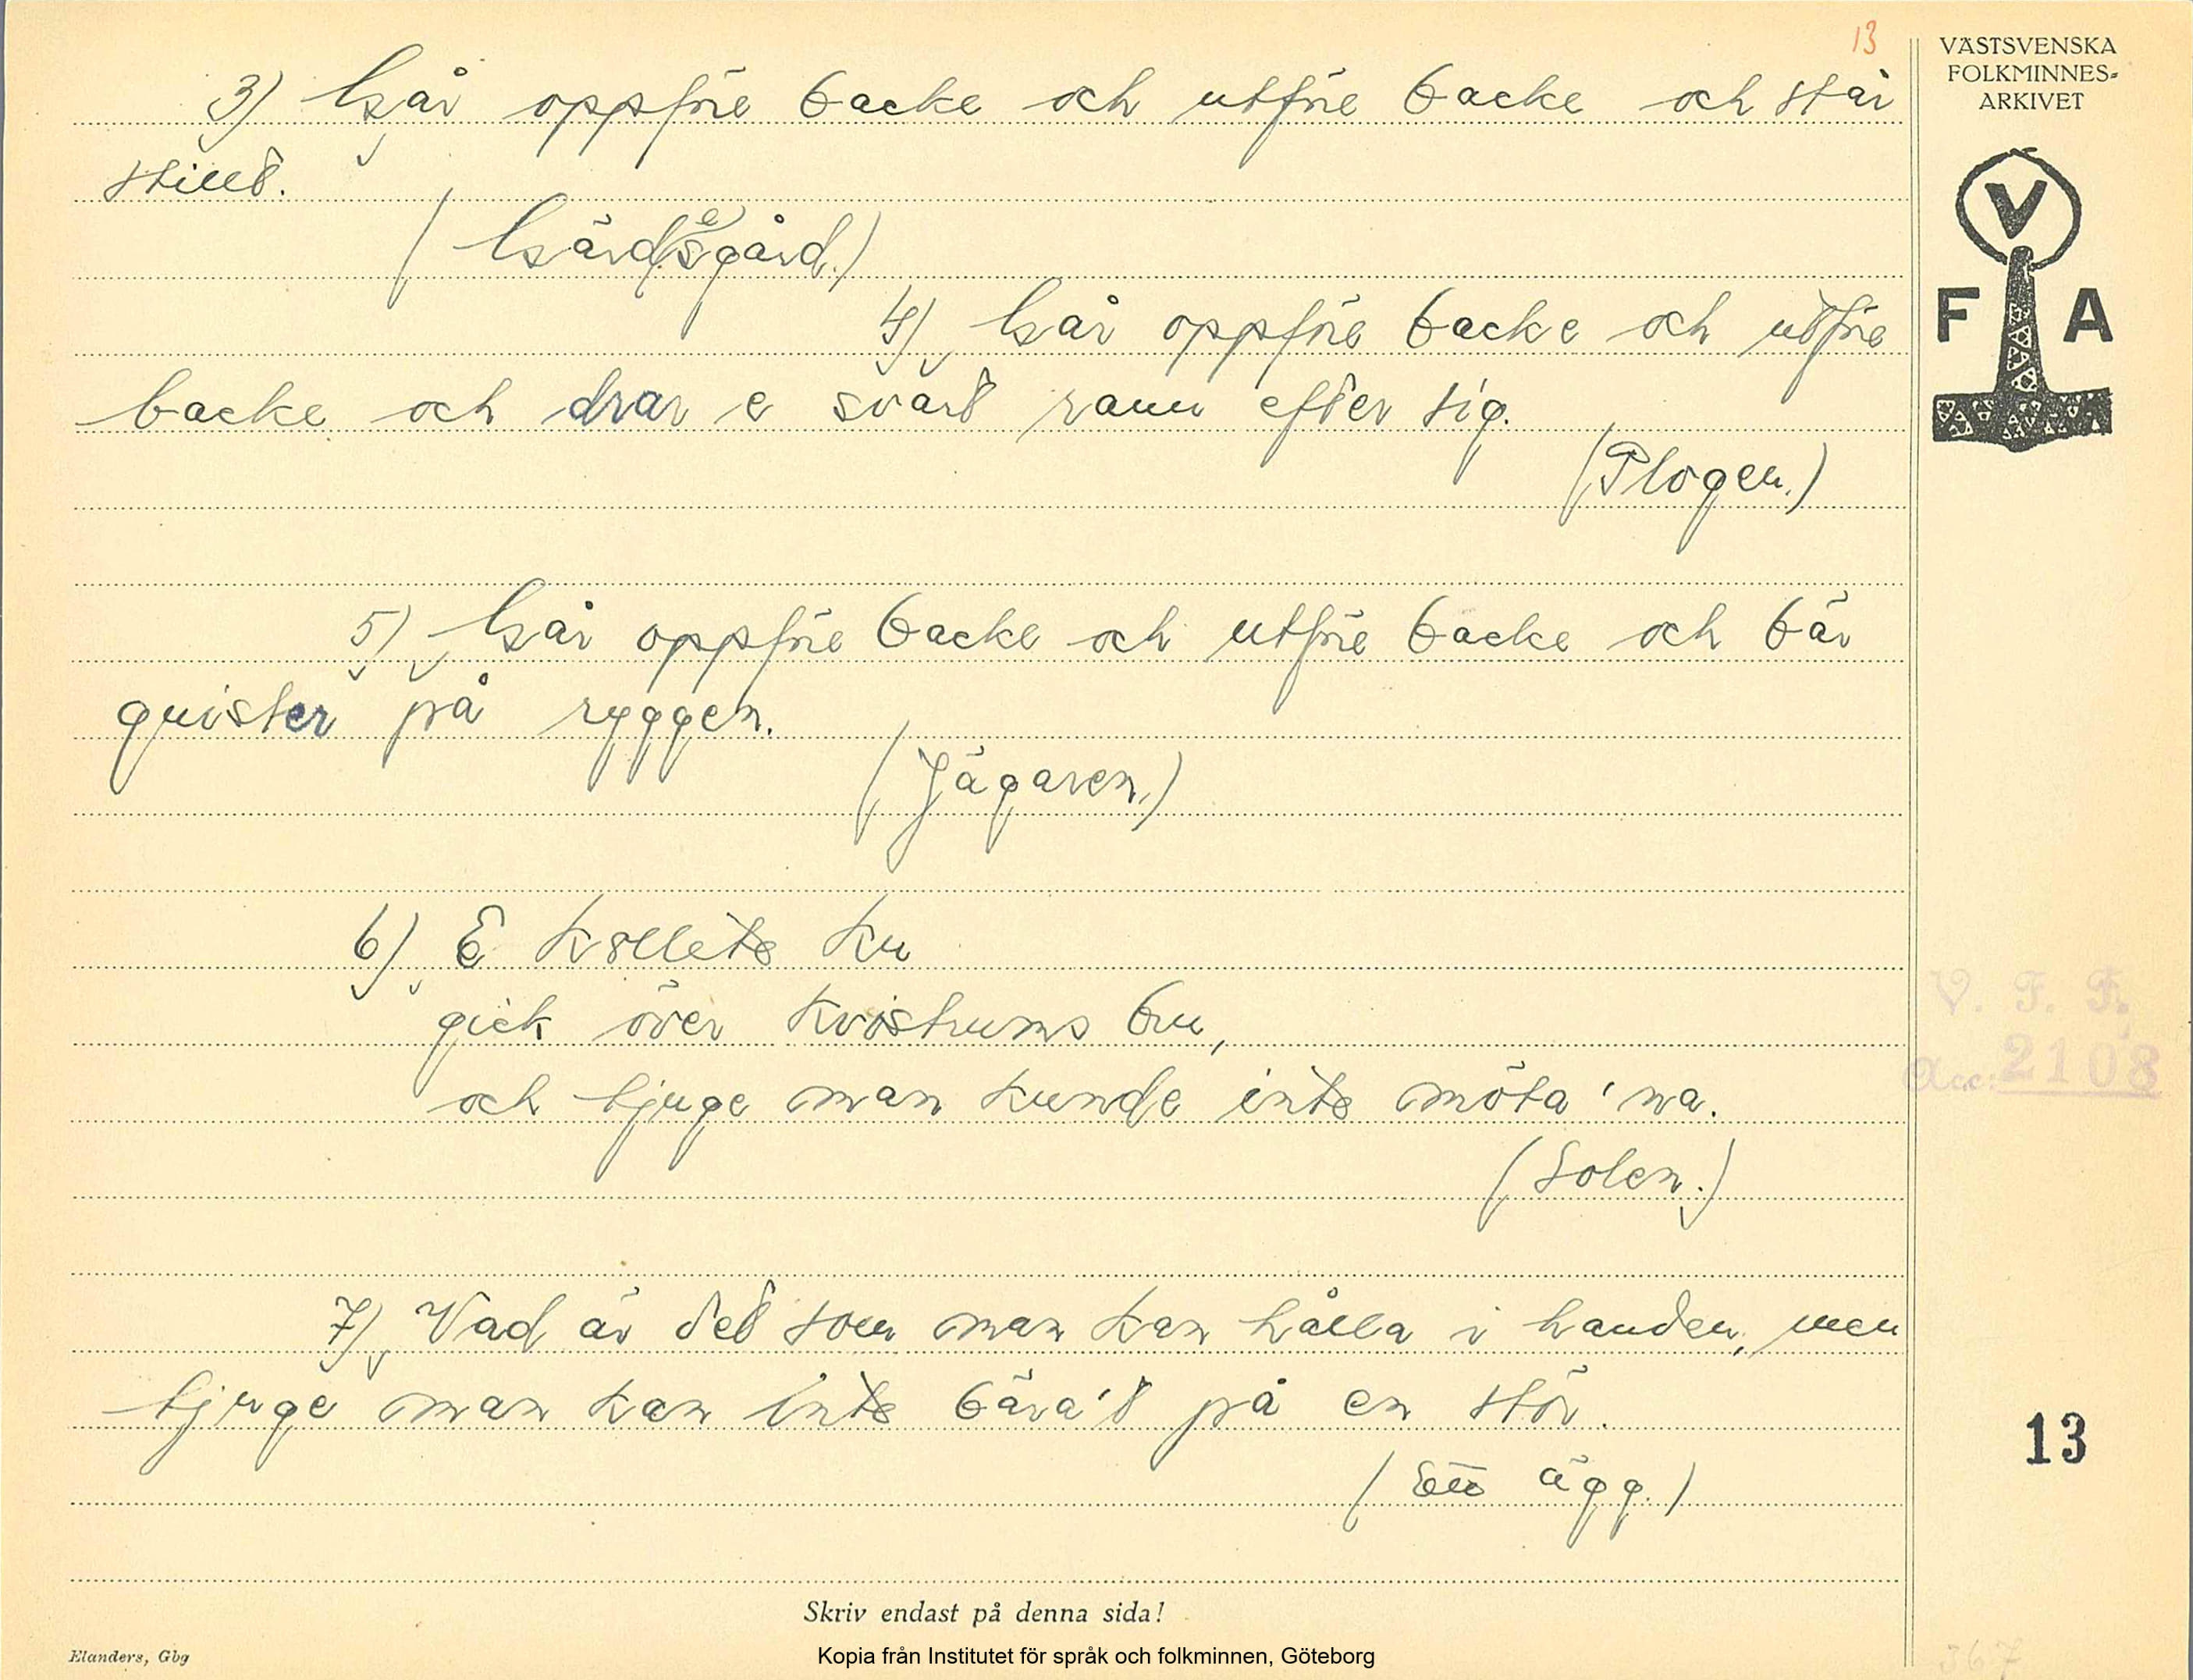 13
VÄSTSVENSKA
FOLKMINNES-
ARKIVET
V
F A
3) Går oppföre backe och utföre backe och står
stilt.
(Gärd(e)sgård.)
4) Går oppföre backe och utföre
backe och drar e svart ramn efter sig.
(Plogen.)
5) Går oppföre backe och utföre backe och bär
quister på ryggen.
(Jägaren.)
6) E kollete ku
gick över Kvistrums bru,
och tjuge man kunde inte möta 'na.
(Solen.)
7) Vad är det som man kan hålla i handen, men
tjuge man kan inte bära't på en stör.
(Ett ägg.)
V. F. F.
Acc: 2108
13
Skriv endast på denna sida!
Elanders, Gbg
Kopia från Institutet för språk och folkminnen, Göteborg
367